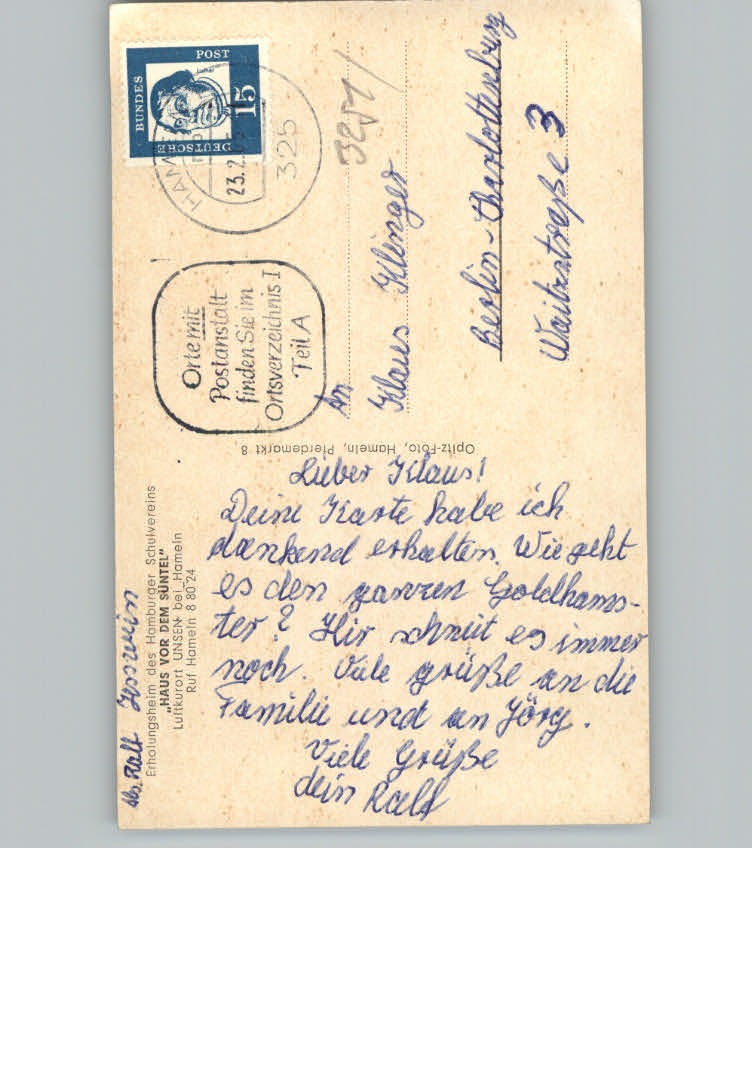 DEUTSCHE
BUNDES
POST
15
HAME
23.2.6
325
3251/
Orte mit
Postanstalt
finden Sie im
Ortsverzeichnis I
Teil A
An
Klaus Klinger
Berlin-Charlottenburg
Waitzstraße 3
Opitz-Foto, Hameln, Pferdemarkt 8
Abs. Ralf
Erholungsheim des Hamburger Schulvereins
„HAUS VOR DEM SÜNTEL"
Luftkurort UNSEN bei Hameln
Ruf Hameln 8 80 24
Lieber Klaus!
Deine Karte habe ich
dankend erhalten. Wie geht
es den ganzen Goldhams-
ter? Hir schneit es immer
noch. Viele grüße an die
Familie und an Jörg.
Viele Grüße
dein Ralf